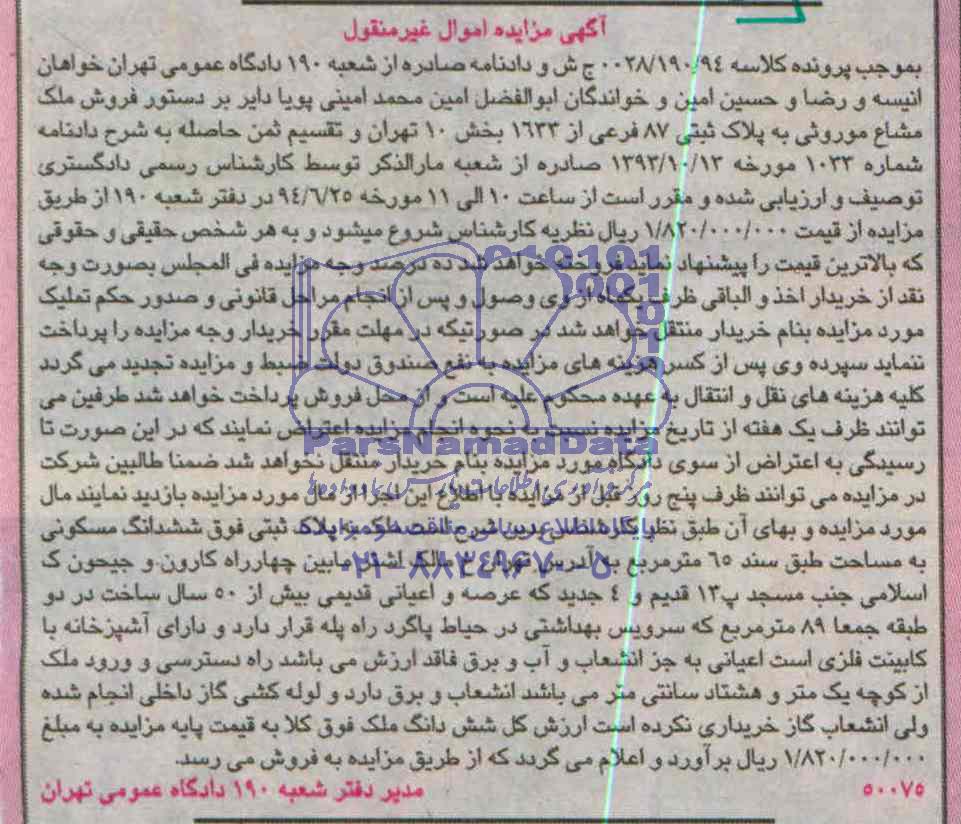 آگهی مزایده اموال غیرمنقول
بموجب پرونده کلاسه ۰۰۲۸/۱۹۰/۹٤ ج ش و دادنامه صادره از شعبه ۱۹۰ دادگاه عمومی تهران خواهان
انیسه و رضا و حسین امین و خواندگان ابوالفضل امین محمد امینی پویا دایر بر دستور فروش ملک
مشاع موروثی به پلاک ثبتی ۸۷ فرعی از ۱٦۳۳ بخش ۱۰ تهران و تقسیم ثمن حاصله به شرح دادنامه
شماره ۱۰۳۳ مورخه ۱۳۹۳/۱۰/۱۳ صادره از شعبه مارالذکر توسط کارشناس رسمی دادگستری
توصیف و ارزیابی شده و مقرر است از ساعت ۱۰ الی ۱۱ مورخه ۹٤/٦/۲۵ در دفتر شعبه ۱۹۰ از طریق
مزایده از قیمت ۱/۸۲۰/۰۰۰/۰۰۰ ریال نظریه کارشناس شروع میشود و به هر شخص حقیقی و حقوقی
که بالاترین قیمت را پیشنهاد نماید فروخته خواهد شد ده درصد وجه مزایده فی المجلس بصورت وجه
نقد از خریدار اخذ و الباقی ظرف یکماه از وی وصول و پس از انجام مراحل قانونی و صدور حکم تملیک
مورد مزایده بنام خریدار منتقل خواهد شد در صورتیکه در مهلت مقرر خریدار وجه مزایده را پرداخت
ننماید سپرده وی پس از کسر هزینه های مزایده به نفع صندوق دولت ضبط و مزایده تجدید می گردد
کلیه هزینه های نقل و انتقال به عهده محکوم علیه است و از محل فروش پرداخت خواهد شد طرفین می
توانند ظرف یک هفته از تاریخ مزایده نسبت به نحوه انجام مزایده اعتراض نمایند که در این صورت تا
رسیدگی به اعتراض از سوی دادگاه مورد مزایده بنام خریدار منتقل نخواهد شد ضمنا طالبین شرکت
در مزایده می توانند ظرف پنج روز قبل از مزایده با اطلاع این اجرا از مال مورد مزایده بازدید نمایند مال
مورد مزایده و بهای آن طبق نظر کارشناس به این شرح است ملک به پلاک ثبتی فوق ششدانگ مسکونی
به مساحت طبق سند ٦۵ مترمربع به آدرس تهران خ مالک اشتر مابین چهارراه کارون و جیحون ک
اسلامی جنب مسجد پ۱۳ قدیم و ٤ جدید که عرصه و اعیانی قدیمی بیش از ۵۰ سال ساخت در دو
طبقه جمعا ۸۹ مترمربع که سرویس بهداشتی در حیاط پاگرد راه پله قرار دارد و دارای آشپزخانه با
کابینت فلزی است اعیانی به جز انشعاب و آب و برق فاقد ارزش می باشد راه دسترسی و ورود ملک
از کوچه یک متر و هشتاد سانتی متر می باشد انشعاب و برق دارد و لوله کشی گاز داخلی انجام شده
ولی انشعاب گاز خریداری نکرده است ارزش کل شش دانگ ملک فوق کلا به قیمت پایه مزایده به مبلغ
۱/۸۲۰/۰۰۰/۰۰۰ ریال برآورد و اعلام می گردد که از طریق مزایده به فروش می رسد.
۵۰۰۷۵ مدیر دفتر شعبه ۱۹۰ دادگاه عمومی تهران
ParsNamadData
۰۲۱-۸۸۳٤۹٦۷۰-۵